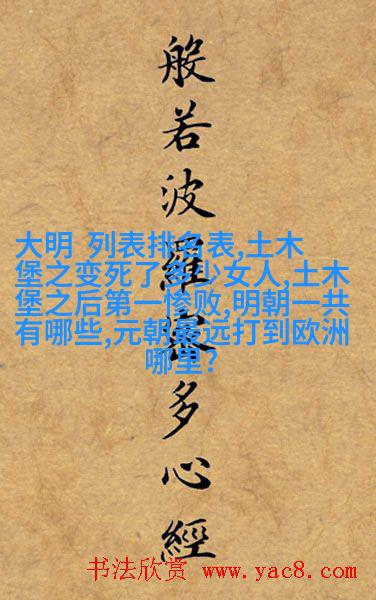 般若波羅蜜多心經
大明 列表排名表,土木
堡之变死了多少女人,土木
堡之后第一惨败,明朝一共
有哪些,元朝最远打到欧洲
哪里?
书法欣赏 www.yac8.com